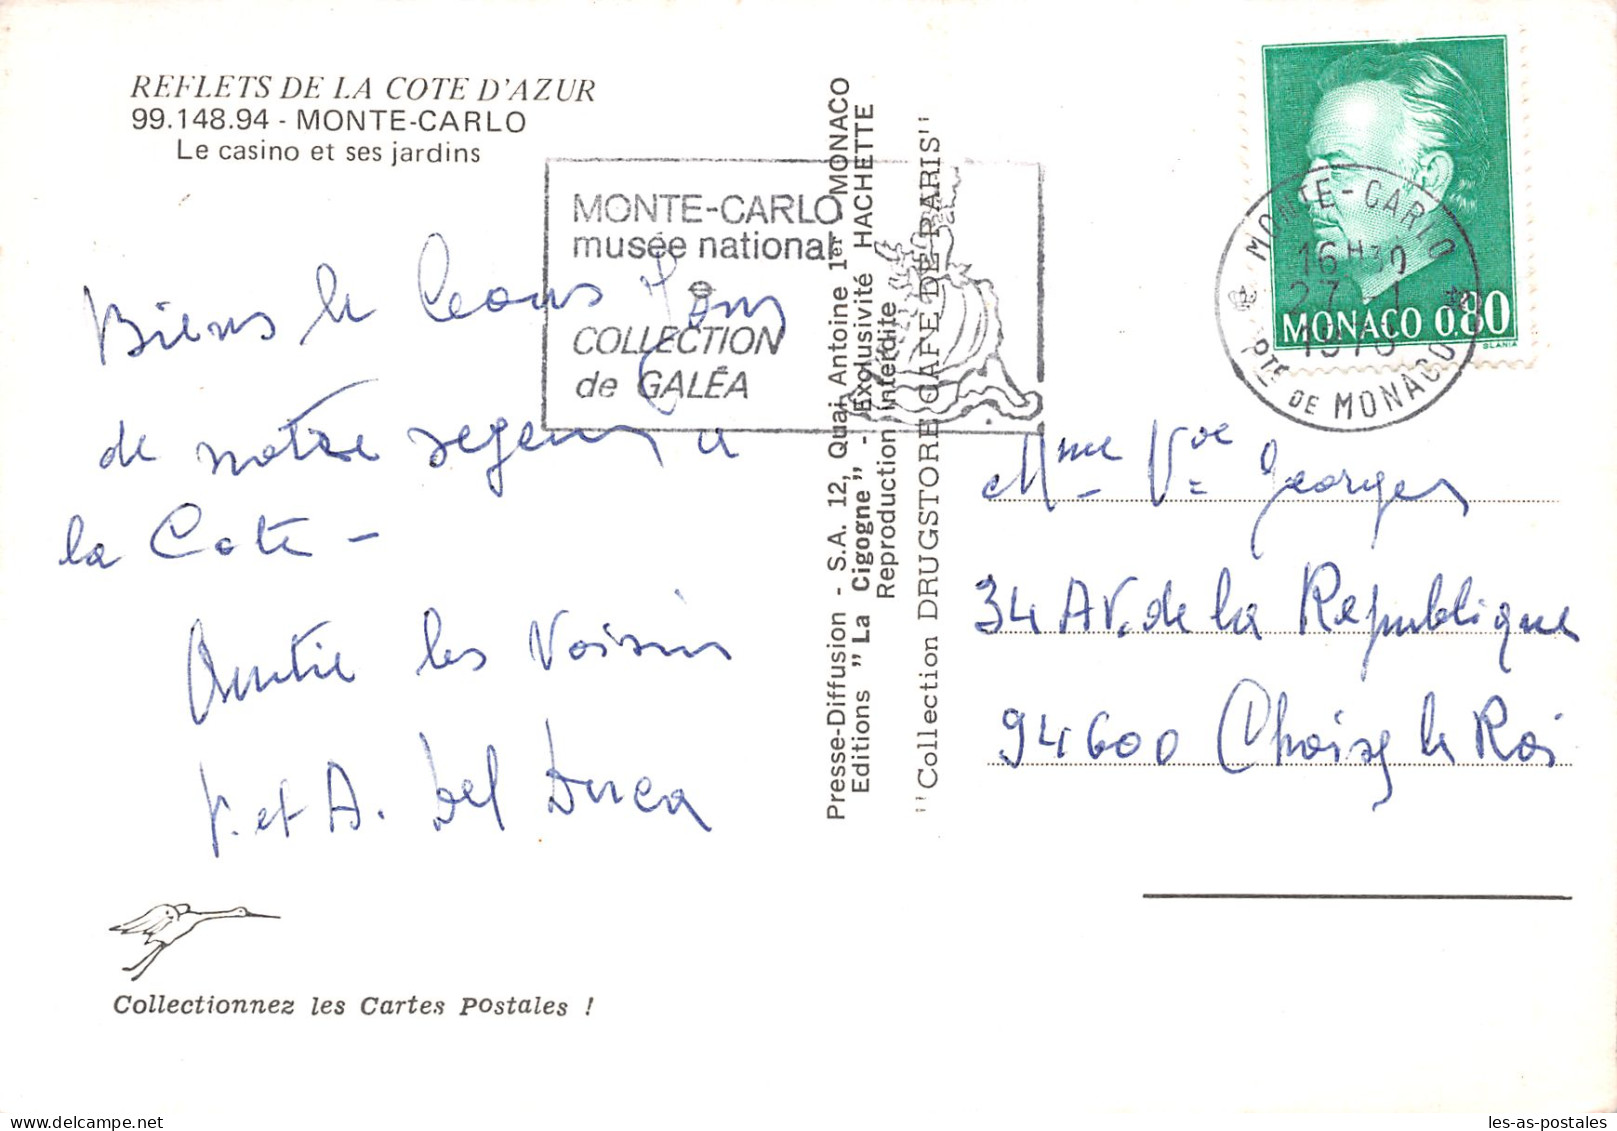 REFLETS DE LA COTE D'AZUR
99.148.94 - MONTE-CARLO
Le casino et ses jardins
MONTE-CARLO
musée national
COLLECTION
de GALÉA
de notre segeur a
la Cote -
Amitié les Voisins
V. et A. Del Duca
Collectionnez les Cartes Postales !
Presse-Diffusion - S.A. 12, Quai Antoine 1er MONACO
Editions "La Cigogne" - Exclusivité HACHETTE
Reproduction interdite
"Collection DRUGSTORE CAFE DE PARIS"
MONACO 0.80
SLANIA
MONTE-CARLO
16H30
27 1
PTÉ DE MONACO
Mme Vve Georges
34 AV. de la Republique
94600 Choisy le Roi
les-as-postales